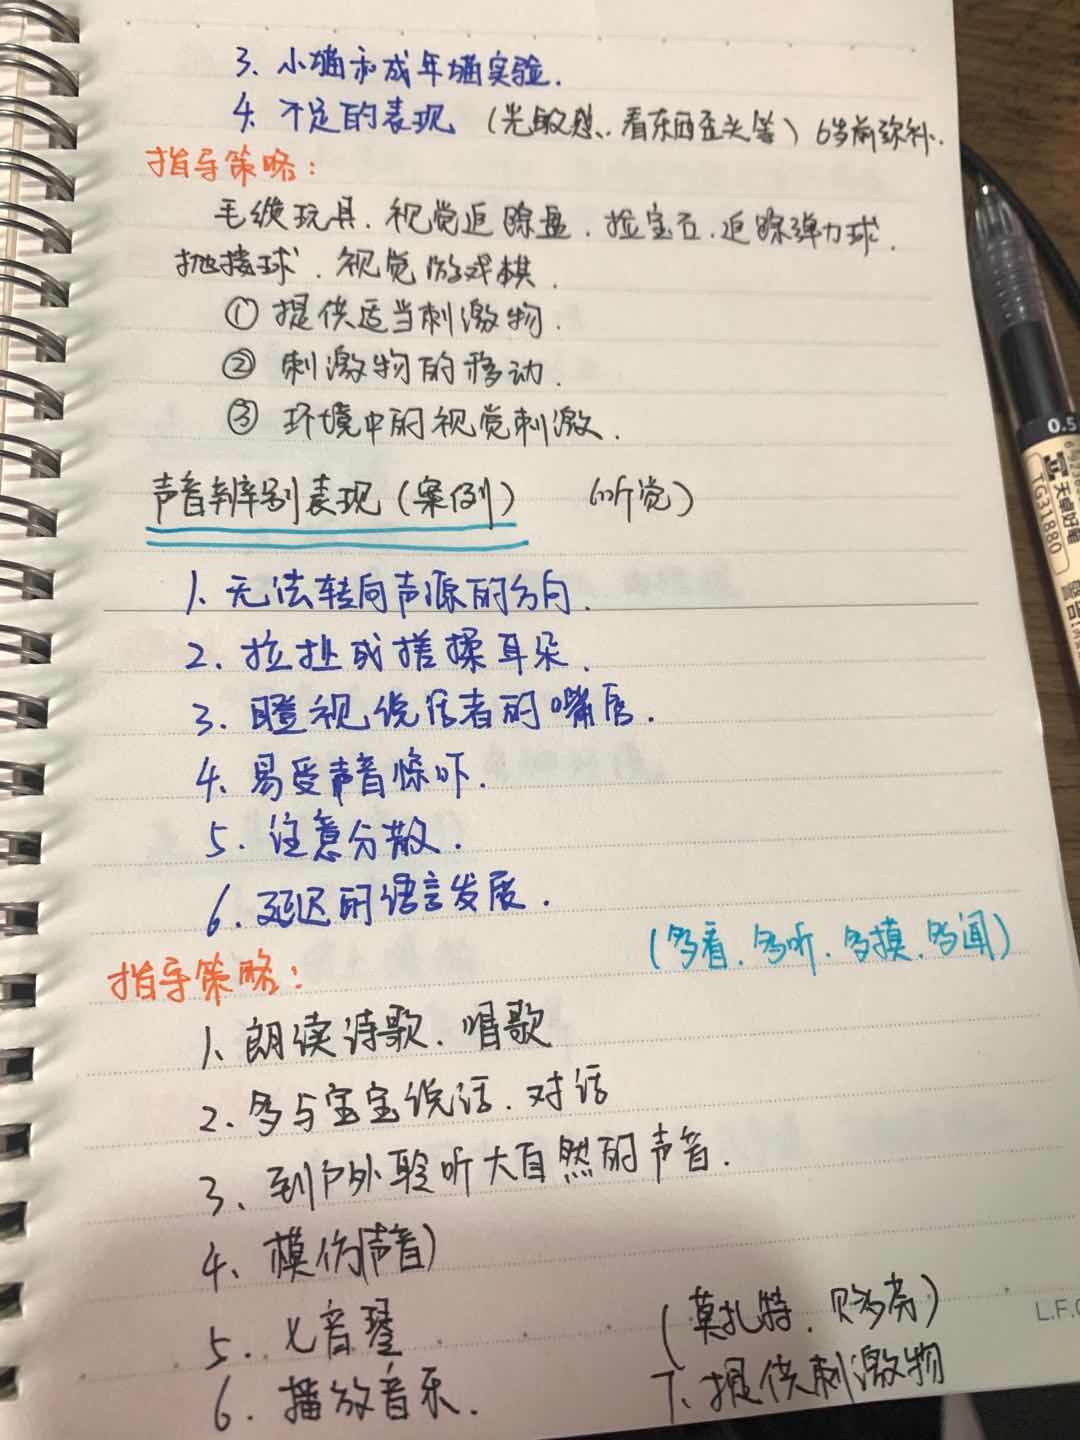 3、小猫和成年猫实验.
4、不足的表现 (光敏感、看东西歪头等) 6岁前弥补.
指导策略:
毛绒玩具.视觉追踪盘.捡宝石.追踪弹力球.
抛接球.视觉游戏棋.
① 提供适当刺激物.
② 刺激物的移动.
③ 环境中的视觉刺激.
声音辨别表现(案例) (听觉)
1、无法转向声源的方向.
2、拉扯或搓揉耳朵.
3、瞪视说话者的嘴唇.
4、易受声音惊吓.
5、注意分散.
6、延迟的语言发展.
(多看.多听.多摸.多闻)
指导策略:
1、朗读诗歌.唱歌
2、多与宝宝说话.对话
3、到户外聆听大自然的声音.
4、模仿(声音)
5、七音琴
6、播放音乐. (莫扎特.贝多芬)
7、提供刺激物
0.5
天卓好笔
TG31880
L.F.